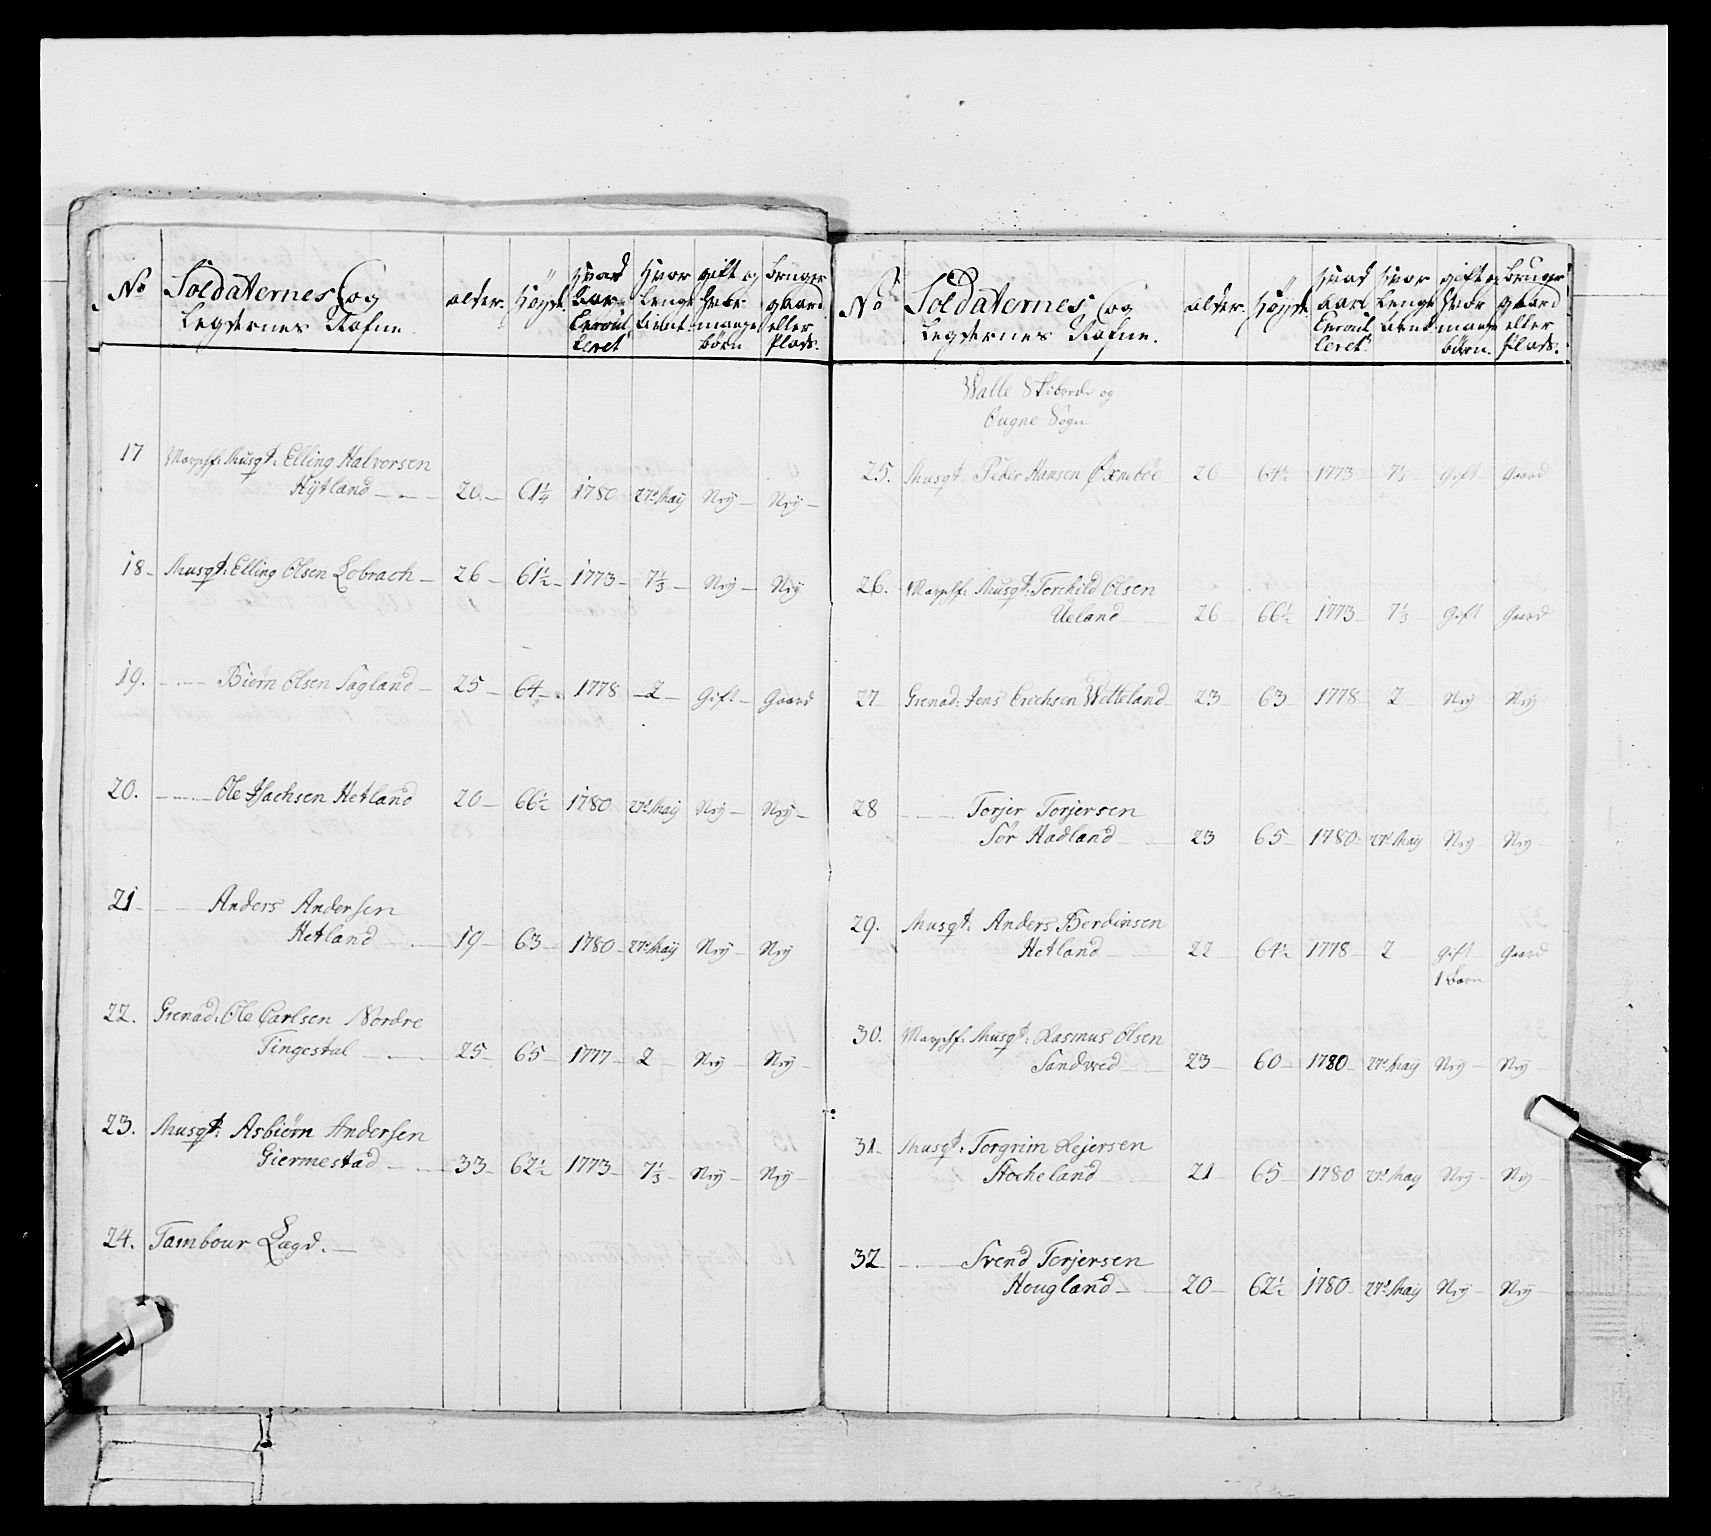 No Soldaternes og Legdernes Nafne. alder. Höyde. hvad aar Enroulleret Hvor Lenge tient gift og hvor mange börn bruger gaard eller Plads.
17 Musqt. Elling Halvorsen
Hÿtland — 20 — 61¼ 1780 27d Maÿ Nÿ — Nÿ —
18 — Musqt: Elling Olsen Lobrach — 26 — 61½ — 1773 — 7⅓ — Nÿ — Nÿ
19. — Biörn Olsen Sagland — 25 — 64 — 1778 — 2 — Gift — Gaard
20. — Ole Isachsen Hetland 20 — 66½ 1780 27d Maÿ Nÿ — Nÿ —
21 — Anders Andersen
Hetland — 19 — 63 — 1780 — 27d Maÿ Nÿ — Nÿ
22. Grenad. Ole Carlsen Nordre
Tingestal — 25 — 65 — 1777 — 2 — Nÿ — Nÿ —
23. Musqt: Asbiörn Andersen
Giermestad — 33 — 62½ 1773 — 7⅓ — Nÿ — Nÿ —
24. Tambour Lægd. —
No Soldaternes og Legdernes Nafne. alder. Höyde. hvad aar Enroulleret Hvor Lenge tient gift og hvor mange börn. bruger gaard eller Plads.
Walle og
Ougne Sogn
25. Musqt. Peder Hansen Öxneböe — 26 — 64½ 1773 — 7⅓ — Gift — Gaard
26. Musqt: Torchild Olsen
Ueland — 26 — 66½ 1773 — 7⅓ — Gift Gaard
27 — Grenad: Jens Erichsen Wetteland — 23 — 63 — 1778 — 2 — Nÿ — Nÿ —
28 — Torjer Torjersen
Sör Hadland — 23 65 — 1780 — 27d Maÿ Nÿ — Nÿ —
29. Musqt: Anders Berdinsen
Hetland — 22 — 64½ 1778 — 2 — Gift — Gaard
1 Barn
30. Musqt: Rasmus Olsen
Sandved — 23 — 60 — 1780 — 27d Maÿ Nÿ — Nÿ —
31 — Musqt: Torgrim Rejersen
Stocheland — 21 — 65 — 1780 27d Maÿ Nÿ — Nÿ —
32 — Svend Torjersen
Hougland — 20 — 62½ 1780 — 27d Maÿ Nÿ — Nÿ —